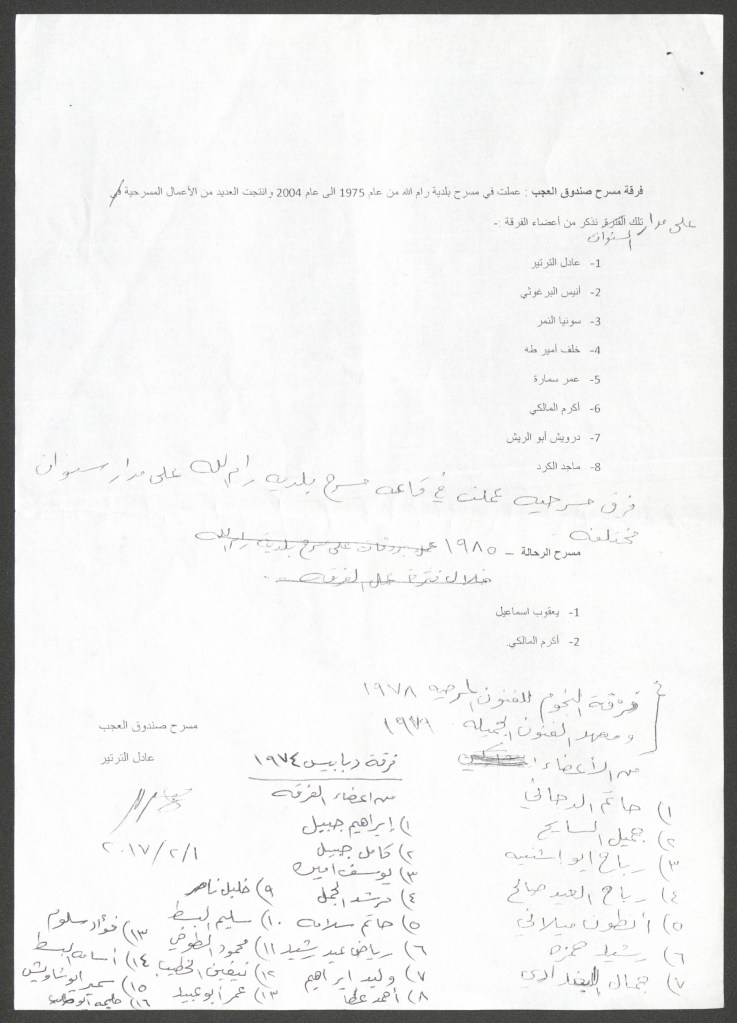 فرقة مسرح صندوق العجب : عملت في مسرح بلدية رام الله من عام 1975 الى عام 2004 وانتجت العديد من الأعمال المسرحية في
على مدار تلك الفترة نذكر من أعضاء الفرقة :-
السنوات
1- عادل الترتير
2- أنيس البرغوثي
3- سونيا النمر
4- خلف أمير طه
5- عمر سمارة
6- أكرم المالكي
7- درويش أبو الريش
8- ماجد الكرد
فرق مسرحيه عملت في قاعه مسرح بلديه رام الله على مدار سنوات
مختلفه
مسرح الرحالة – ١٩٨٥ على مسرح بلدية رام الله
خلال فترة عمل الفرقه
1- يعقوب اسماعيل
2- أكرم المالكي.
فرقة النجوم للفنون المسرحيه ١٩٧٨
ومعهد الفنون الجميله ١٩٧٩
من الأعضاء
١) حاتم الدجاني
٢) جميل السايح
٣) رباح ابو اشنيه
٤) رباح العبد صالح
٥) أنطون ميلاني
٦) رشيد حمزه
٧) جمال البغدادي
فرقة دبابيس ١٩٧٤
من اعضاء الفرقه
١) إبراهيم جبيل
٢) كامل جبيل
٣) يوسف امين
٤) مرشد الجمل
٥) حاتم سلامه
٦) رياض عبد رشيد
٧) وليد ابراهيم
٨) أحمد عطا
٩) خليل ناصر
١٠) سليم البسط
١١) محمود
١٢) نيفين الخطيب
١٣) عمر أبو عبيد
١٣) فؤاد سلوم
١٤) أسامه البسط
١٥) سمير ابو شاويش
١٦) حليمه ابو
مسرح صندوق العجب
عادل الترتير
٢٠١٧/٢/١